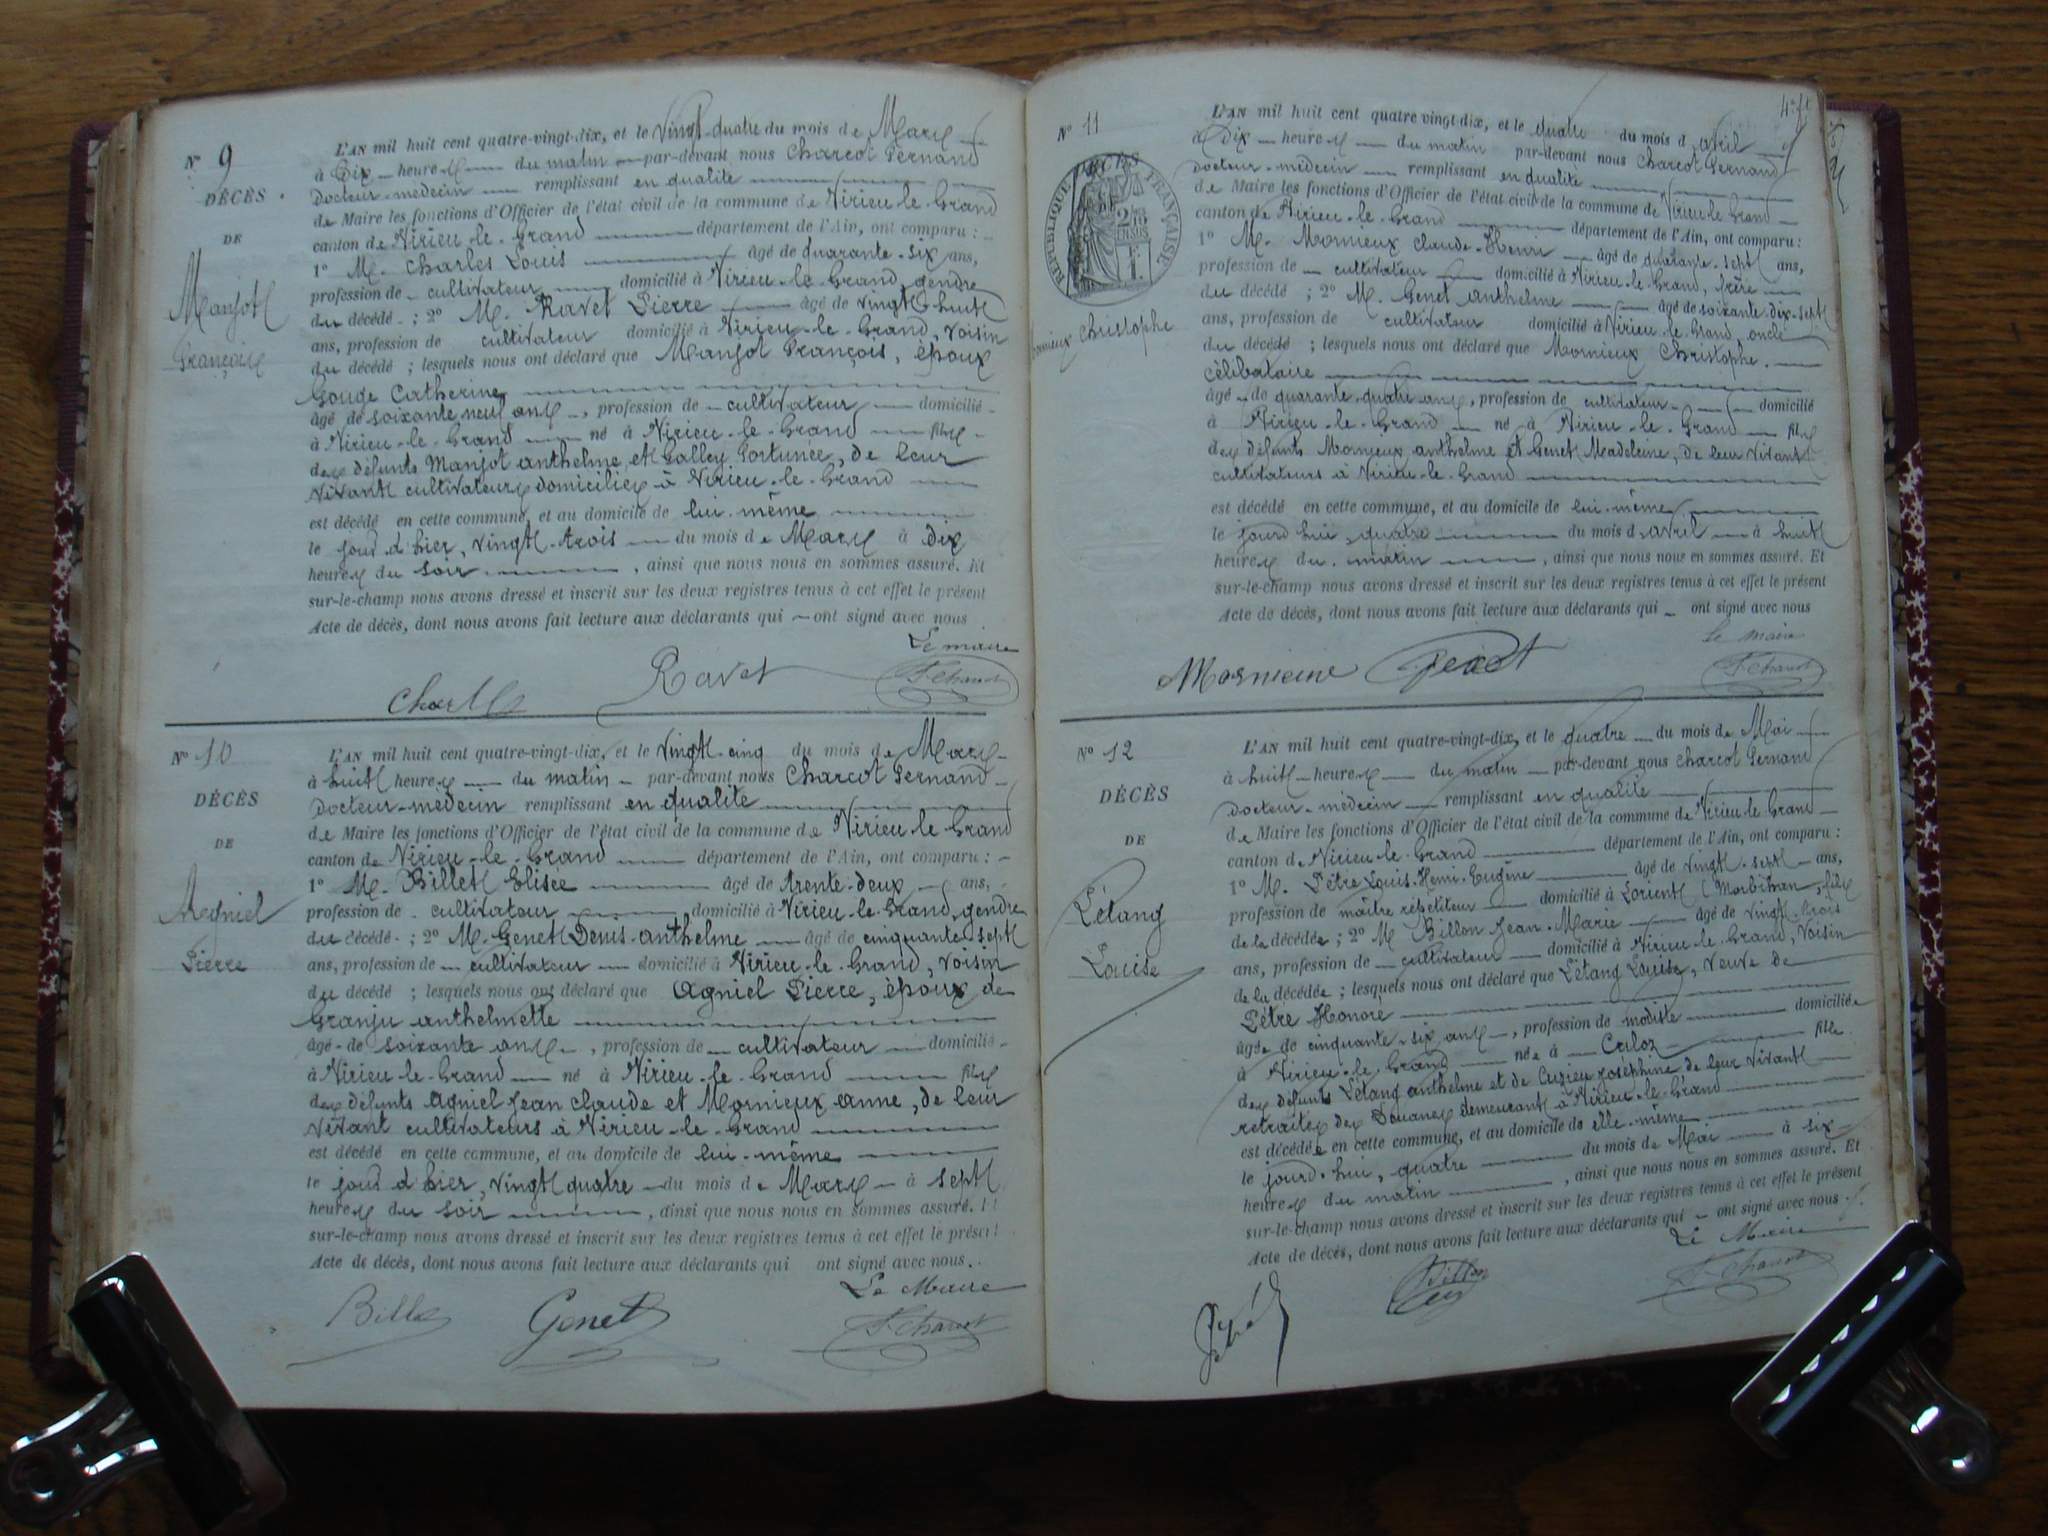 N° 9
DÉCÈS
DE
Manjot
François
L'AN mil huit cent quatre-vingt-dix, et le Vingt-quatre du mois de Mars
à Dix heures du matin par-devant nous Charcot Fernand
Docteur-medecin remplissant en qualité
de Maire les fonctions d'Officier de l'état civil de la commune de Virieu-le-Grand
canton de Virieu-le-Grand département de l'Ain, ont comparu :
1° M. Charles Louis âgé de quarante-six ans,
profession de cultivateur domicilié à Virieu-le-Grand, gendre
du décédé ; 2° M. Ravet Pierre âgé de vingt-huit
ans, profession de cultivateur domicilié à Virieu-le-Grand, voisin
du décédé ; lesquels nous ont déclaré que Manjot François, époux
Gouge Catherine
âgé de soixante neuf ans, profession de cultivateur domicilié
à Virieu-le-Grand né à Virieu-le-Grand fils
des défunts Manjot anthelme et Galley Fortunée, de leur
vivant cultivateurs domiciliés à Virieu-le-Grand
est décédé en cette commune, et au domicile de lui-même
le jour d'hier, vingt-trois du mois de Mars à dix
heures du soir, ainsi que nous nous en sommes assuré. Et
sur-le-champ nous avons dressé et inscrit sur les deux registres tenus à cet effet le présent
Acte de décès, dont nous avons fait lecture aux déclarants qui ont signé avec nous
Le maire
Ravet
F. Charcot
N° 10
DÉCÈS
DE
Agniel
Pierre
L'AN mil huit cent quatre-vingt-dix, et le vingt-cinq du mois de Mars
à huit heures du matin par-devant nous Charcot Fernand
Docteur-medecin remplissant en qualité
de Maire les fonctions d'Officier de l'état civil de la commune de Virieu-le-Grand
canton de Virieu-le-Grand département de l'Ain, ont comparu :
1° M. Billet Elisée âgé de trente-deux ans,
profession de cultivateur domicilié à Virieu-le-Grand, gendre
du décédé ; 2° M. Genet Denis-anthelme âgé de cinquante-sept
ans, profession de cultivateur domicilié à Virieu-le-Grand, voisin
du décédé ; lesquels nous ont déclaré que Agniel Pierre, époux de
Granju anthelmette
âgé de soixante ans, profession de cultivateur domicilié
à Virieu-le-Grand né à Virieu-le-Grand fils
des défunts Agniel Jean claude et Mornieux anne, de leur
vivant cultivateurs à Virieu-le-Grand
est décédé en cette commune, et au domicile de lui-même
le jour d'hier, vingt quatre du mois de Mars à sept
heures du soir, ainsi que nous nous en sommes assuré. Et
sur-le-champ nous avons dressé et inscrit sur les deux registres tenus à cet effet le présent
Acte de décès, dont nous avons fait lecture aux déclarants qui ont signé avec nous.
Le Maire
Billet
Genet
F. Charcot
N° 11
RÉPUBLIQUE FRANÇAISE
Christophe
L'AN mil huit cent quatre vingt-dix, et le quatre du mois d'avril
à Dix heures du matin par-devant nous Charcot Fernand
docteur-medecin remplissant en qualité
de Maire les fonctions d'Officier de l'état civil de la commune de Virieu-le-Grand
canton de Virieu-le-Grand département de l'Ain, ont comparu :
1° M. Mornieux claude-Henri âgé de quarante-sept ans,
profession de cultivateur domicilié à Virieu-le-Grand, frère
du décédé ; 2° M. Genet anthelme âgé de soixante-dix-sept
ans, profession de cultivateur domicilié à Virieu-le-Grand oncle
du décédé ; lesquels nous ont déclaré que Mornieux Christophe.
célibataire
âgé de quarante-quatre ans, profession de cultivateur domicilié
à Virieu-le-Grand né à Virieu-le-Grand fils
des défunts Mornieux anthelme et Genet Madeleine, de leur vivant
cultivateurs à Virieu-le-Grand
est décédé en cette commune, et au domicile de lui-même
le jourd'hui, quatre du mois d'avril à huit
heures du matin, ainsi que nous nous en sommes assuré. Et
sur-le-champ nous avons dressé et inscrit sur les deux registres tenus à cet effet le présent
Acte de décès, dont nous avons fait lecture aux déclarants qui ont signé avec nous
Le maire
Mornieux
Genet
F. Charcot
N° 12
DÉCÈS
DE
Létang
Louise
L'AN mil huit cent quatre-vingt-dix, et le quatre du mois de Mai
à huit heures du matin par-devant nous Charcot Fernand
Docteur-médecin remplissant en qualité
de Maire les fonctions d'Officier de l'état civil de la commune de Virieu-le-Grand
canton de Virieu-le-Grand département de l'Ain, ont comparu :
1° M. Pétré Louis-Henri-Eugène âgé de vingt-sept ans,
profession de maître répétiteur domicilié à Lorient (Morbihan), fils
de la décédée ; 2° M Billon Jean-Marie âgé de vingt-trois
ans, profession de cultivateur domicilié à Virieu-le-Grand, voisin
de la décédée ; lesquels nous ont déclaré que Létang Louise, veuve de
Pétré Honoré
âgée de cinquante-six ans, profession de modiste domiciliée
à Virieu-le-Grand née à Culoz fille
des défunts Létang anthelme et de Cuzieu Joséphine de leur vivant
retraités des Douanes demeurant à Virieu-le-Grand
est décédée en cette commune, et au domicile de elle-même
le jourd'hui, quatre du mois de Mai à six
heures du matin, ainsi que nous nous en sommes assuré. Et
sur-le-champ nous avons dressé et inscrit sur les deux registres tenus à cet effet le présent
Acte de décès, dont nous avons fait lecture aux déclarants qui ont signé avec nous.
Le Maire
Pétré
Billon
F. Charcot